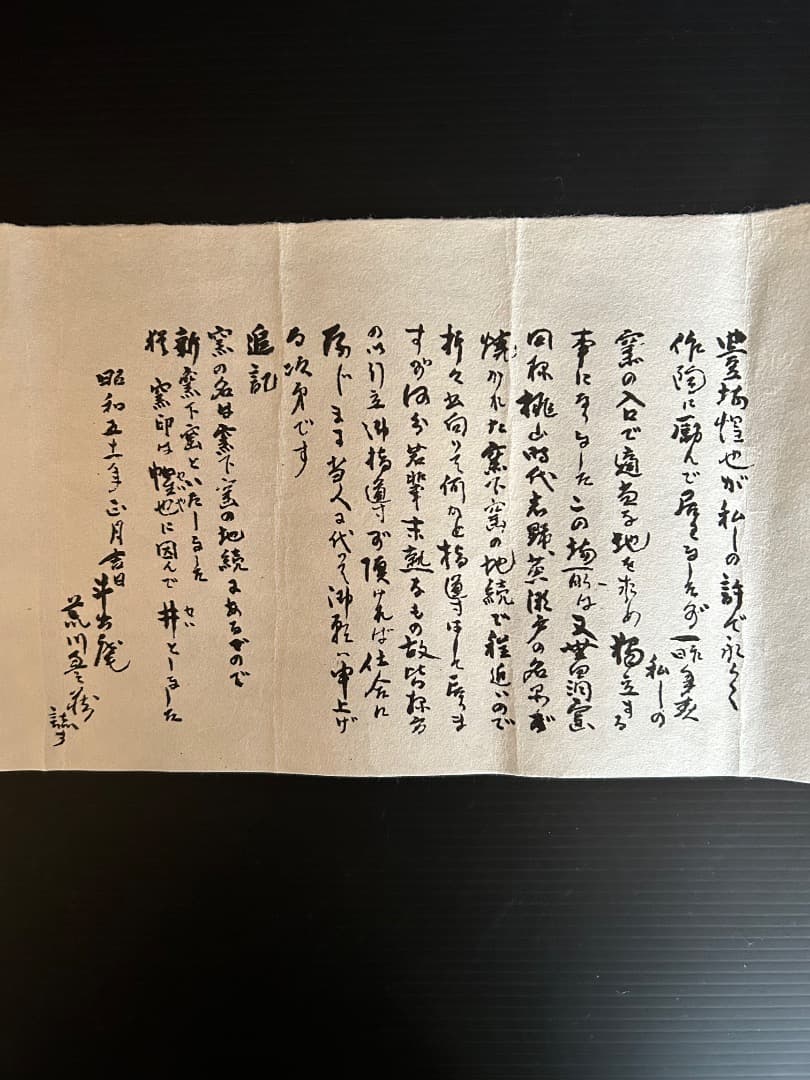 豊場惺也が私しの許で永らく
作陶に励んで居りましたが一昨年夫
私しの
窯の入口で適当な地を求め独立する
事になりました この場所は又世田洞窯
同様桃山時代志野、黄瀬戸の名器が
焼かれた窯下窯の地続で程近いので
折々出向いて何かと指導はして居りま
すが何分若輩未熟なもの故皆様方
の御引立御指導が頂ければ仕合に
存じます 当人に代って御願い申上げ
る次第です
追記
窯の名は窯下窯の地続にあるがので
新窯下窯といたしました
猶 窯印は惺也に因んで 井としました
せいや
せい
昭和五十一年正月吉日
斗出庵
荒川豊蔵
誌す